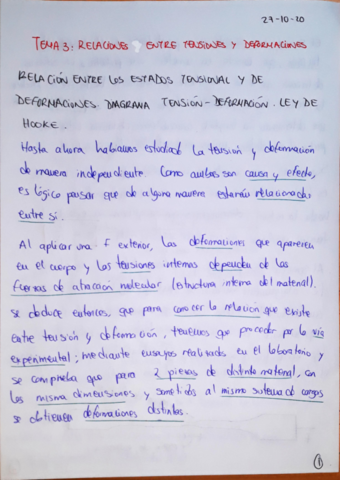 27-10-20
TEMA 3: RELACIONES ENTRE TENSIONES Y DEFORMACIONES
RELACIÓN ENTRE LOS ESTADOS TENSIONAL Y DE
DEFORMACIONES. DIAGRAMA TENSIÓN-DEFORMACIÓN. LEY DE
HOOKE.
Hasta ahora habíamos estudiado la tensión y deformación
de manera independiente. Como ambas son causa y efecto,
es lógico pensar que de alguna manera estarán relacionadas
entre sí.
Al aplicar una f exterior, las deformaciones que aparecen
en el cuerpo y las tensiones internas dependen de las
fuerzas de atracción molecular (estructura interna del material).
se deduce entonces, que para conocer la relación que existe
entre tensión y deformación, tenemos que proceder por la vía
experimental; mediante ensayos realizados en el laboratorio y
se comprueba que para 2 piezas de distinto material, con
las misma dimensiones y sometidas al mismo sistema de cargas
se obtienen deformaciones distintas.
1